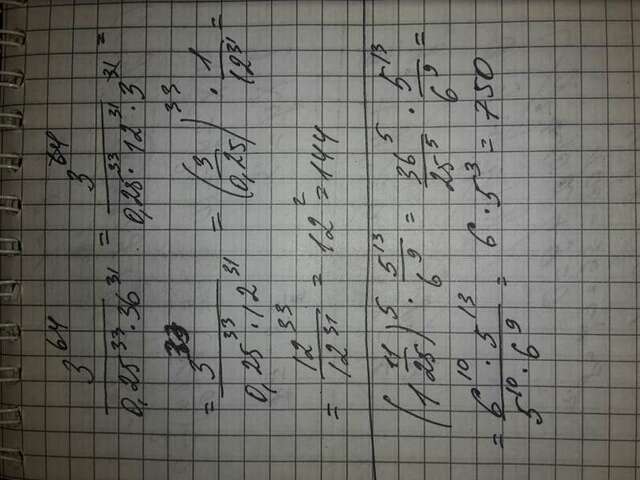 3^64 / (0,25^33 · 36^31) = 3^64 / (0,25^33 · 12^31 · 3^31) =
= 3^33 / (0,25^33 · 12^31) = (3/0,25)^33 · 1/12^31 =
= 12^33 / 12^31 = 12^2 = 144
(1 11/25)^5 · 5^13/6^9 = 36^5/25^5 · 5^13/6^9 =
= (6^10 · 5^13) / (5^10 · 6^9) = 6 · 5^3 = 750